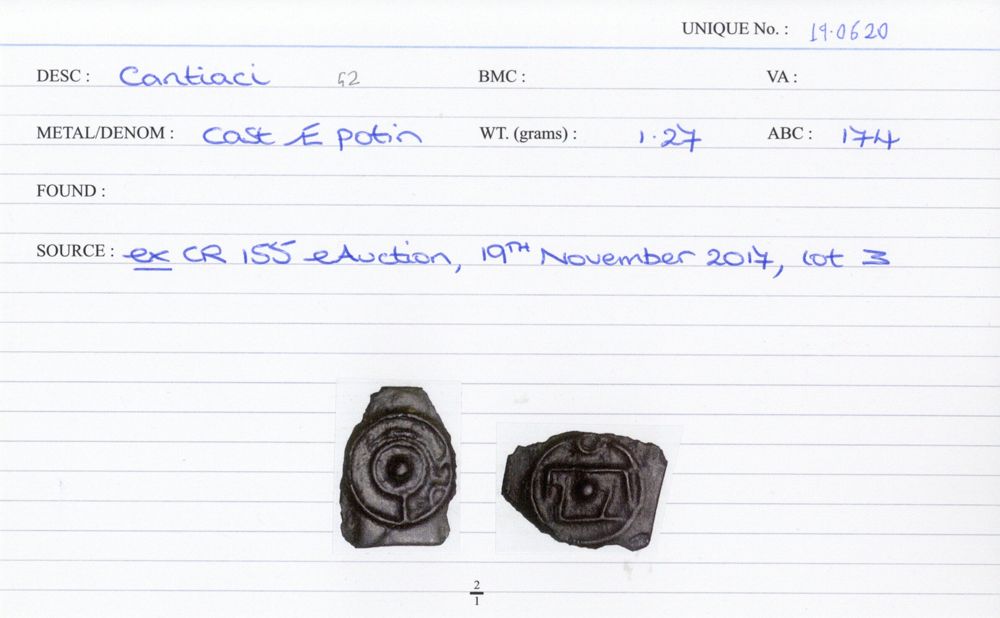 UNIQUE No. : 19.0620
DESC : Cantiaci G2 BMC : VA :
METAL/DENOM : Cast Æ potin WT. (grams) : 1.27 ABC : 174
FOUND :
SOURCE : ex CR 155 eAuction, 19TH November 2017, lot 3
2
1